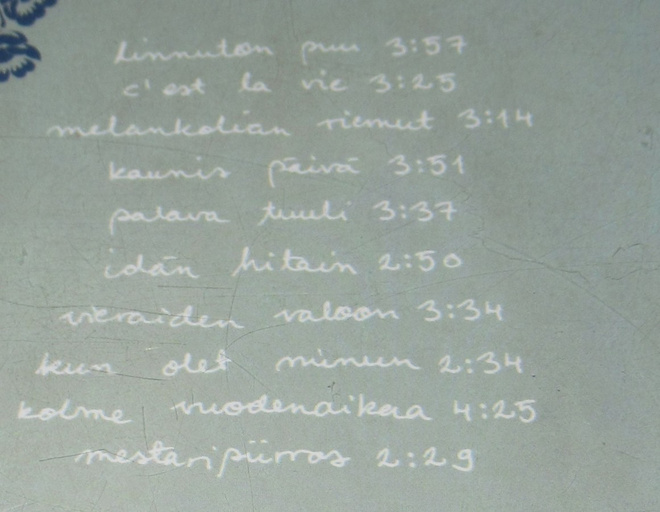 linnuton puu 3:57
c'est la vie 3:25
melankolian riemut 3:14
kaunis päivä 3:51
palava tuuli 3:37
idän hitain 2:50
vieraiden valoon 3:34
kun olet minun 2:34
kolme vuodenaikaa 4:25
mestaripiirros 2:29